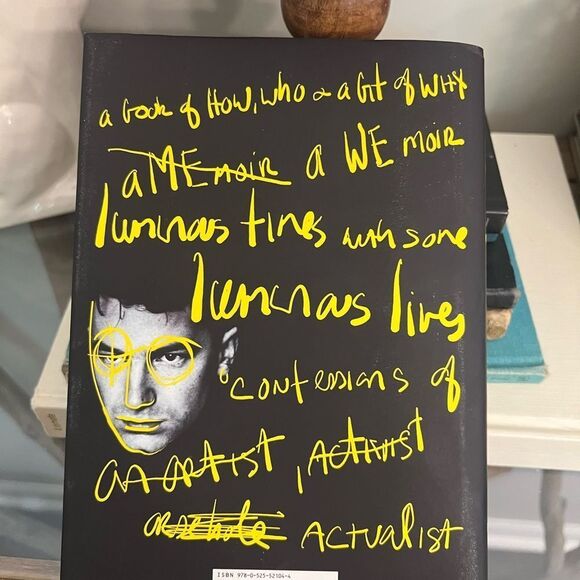 a book of How, who & a bit of WHY
a MEmoir a WE moir
luminous times with some
luminous lives
confessions of
an artist, Activist
Actualist
ISBN 978-0-525-52104-4